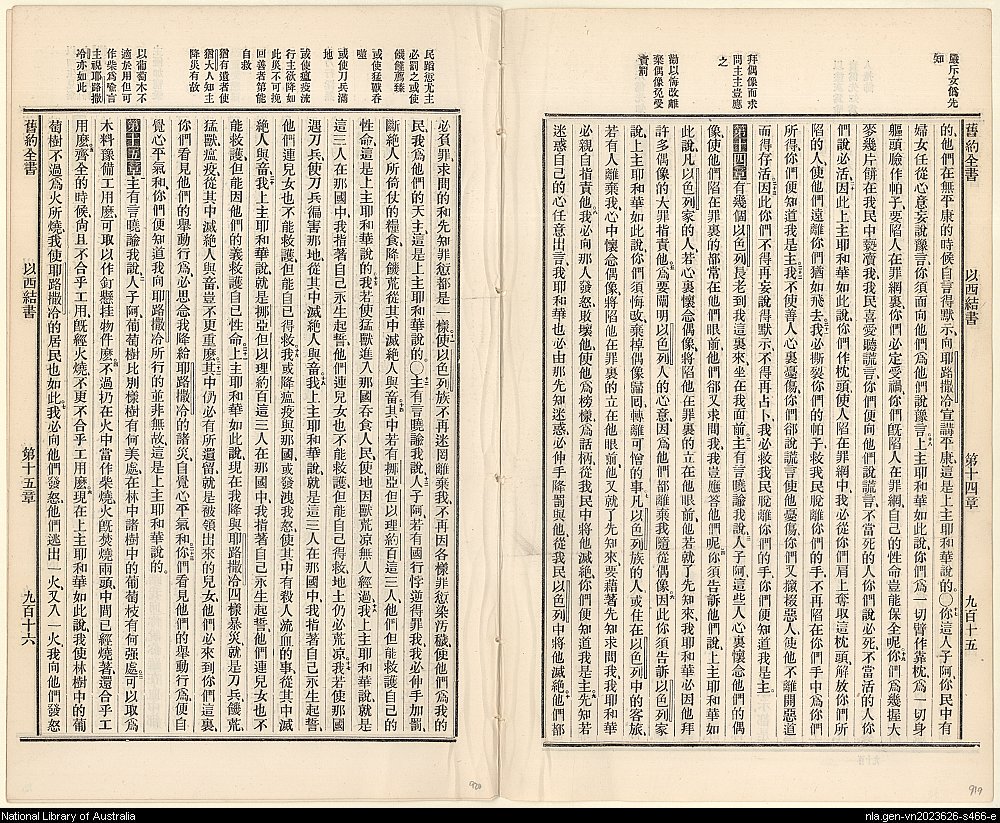 嚴斥女僞先
知
拜偶像而求
問主主豈應
之
勸以悔改離
棄偶像免受
責罰
舊約全書 以西結書 第十四章 九百十五
的、他們在無平康的時候自言得默示、向耶路撒冷宣講平康、這是上主耶和華說的。〇你這人子阿、你民中有
婦女任從心意妄說豫言、你須面向他們、爲他們說豫言、上主耶和華如此說、你們爲一切臂作靠枕、爲一切身
軀頭臉作帕子、要陷人在罪網裏、你們必定受禍、你們旣陷人在罪網、自己的性命豈能保全呢、你們爲幾握大
麥幾片餅、在我民中褻瀆我、我民喜愛聽謊言、你們便向他們說謊言、不當死的人你們說必死、不當活的人你
們說必活、因此上主耶和華如此說、你們作枕頭、使人陷在罪網中、我必從你們肩上奪取這枕頭、解放你們所
陷的人、使他們遠離你們猶如飛去、我必撕裂你們的帕子、救我民脫離你們的手、不再陷在你們手中、爲你們
所得、你們便知道我是主、我不使善人心裏憂傷、你們郤說謊言使他憂傷、你們又攙扶惡人、使他不離開惡道
而得存活、因此你們不得再妄說得默示、不得再占卜、我必救我民脫離你們的手、你們便知道我是主。
第十四章有幾個以色列長老到我這裏來、坐在我面前、主有言曉諭我說、人子阿、這些人心裏懷念他們的偶
像、使他們陷在罪裏的都常在他們眼前、他們郤又求問我、我豈應答他們呢、你須吿訴他們說、上主耶和華如
此說、凡以色列家的人、若心裏懷念偶像、將陷他在罪裏的立在他眼前、他若就了先知來、我耶和華必因他拜
許多偶像的大罪指責他、爲要闡明以色列人的心意、因爲他們都離棄我隨從偶像、因此你須吿訴以色列家
說、上主耶和華如此說、你們須悔改、棄掉偶像、歸囘轉離可憎的事、凡以色列族的人或住在以色列中的客旅、
若有人離棄我、心中懷念偶像、將陷他在罪裏的立在他眼前、他又就了先知來、要藉著先知求問我、我耶和華
必親自指責他、我必向那人發怒、敗壞他、使他爲榜樣、爲話柄、從我民中將他滅絕、你們便知道我是主、先知若
迷惑自己的心任意出言、我耶和華也必由那先知迷惑、必伸手降罰與他、從我民以色列中將他滅絕、他們都
民蹈愆尤主
必罰之或使
饑饉薦臻
或使猛獸吞
噬
或使刀兵滿
地
或使瘟疫流
行主欲降如
此災不可挽
回善者第能
自救
猶有遺者使
猶大人知主
降災有故
以葡萄木不
適於用但可
作柴爲喻言
主視耶路撒
冷亦如此
必負罪、求問的和先知罪愆都是一樣、使以色列族不再迷罔離棄我、不再因各樣罪愆染汚穢、使他們爲我的
民、我爲他們的天主、這是上主耶和華說的。〇主有言曉諭我說、人子阿、若有國行悖逆得罪我、我必伸手加罰、
斷絕人所倚仗的糧食、降饑荒從其中滅絕人與畜、其中若有挪亞但以理約百這三人、他們但能救護自己的
性命、這是上主耶和華說的、我若使猛獸進入那國吞食人民、使地因獸荒凉無人經過、我上主耶和華說、就是
這三人在那國中、我指著自己永生起誓、他們連兒女也不能救護、但能自己得救、地土仍必荒凉、我若使那國
遇刀兵、使刀兵徧害那地、從其中滅絕人與畜、我上主耶和華說、就是這三人在那國中、我指著自己永生起誓、
他們連兒女也不能救護、但能自己得救、我或降瘟疫與那國、或發洩我怒、使其中有殺人流血的事、從其中滅
絕人與畜、我上主耶和華說、就是挪亞但以理約百這三人在那國中、我指著自己永生起誓、他們連兒女也不
能救護、但能因他們的義救護自己性命、上主耶和華如此說、現在我降與耶路撒冷四樣暴災、就是刀兵、饑荒、
猛獸、瘟疫、從其中滅絕人與畜、豈不更重麽、其中仍必有所遺留、就是被領出來的兒女、他們必來到你們這裏、
你們看見他們的舉動行爲、必思念我降給耶路撒冷的諸災、自覺心平氣和、你們看見他們的舉動行爲、便自
覺心平氣和、你們便知道我向耶路撒冷所行的、並非無故、這是上主耶和華說的。
第十五章主有言曉諭我說、人子阿、葡萄樹比別樣樹有何美處、在林中諸樹中的葡萄枝有何强處、可以取爲
木料豫備工用麽、可以取以作釘懸挂物件麽、不過扔在火中當作柴燒、火旣焚燒兩頭、中間已經燒著、還合乎工
用麽、齊全的時候尙且不合乎工用、旣經火燒、更不合乎工用麽、現在上主耶和華如此說、我使林樹中的葡
萄樹不過爲火所燒、我使耶路撒冷的居民也如此、我必向他們發怒、他們逃出一火、又入一火、我向他們發怒
舊約全書 以西結書 第十五章 九百十六
920
919
National Library of Australia
nla.gen-vn2023626-s466-e